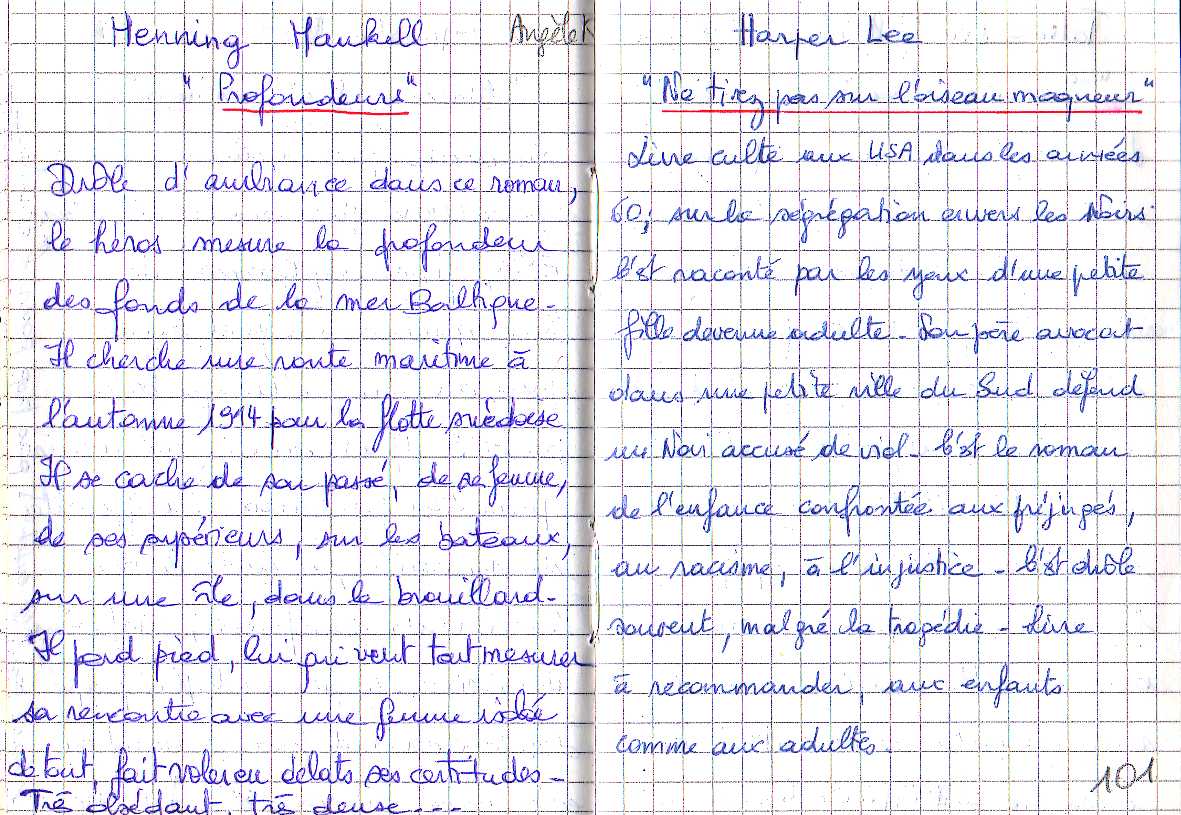 Henning Mankell
Angèle K
"Profondeurs"
Drôle d'ambiance dans ce roman,
le héros mesure la profondeur
des fonds de la mer Baltique-
Il cherche une route maritime à
l'automne 1914 pour la flotte suédoise
Il se cache de son passé, de sa femme,
de ses supérieurs, sur les bateaux,
sur une île, dans le brouillard-
Il perd pied, lui qui veut tout mesurer
sa rencontre avec une femme isolée
de tout, fait voler en éclats ses certitudes-
Très obsédant, très dense----
Harper Lee
"Ne tirez pas sur l'oiseau moqueur"
Livre culte aux USA dans les années
60, sur la ségrégation envers les Noirs.
C'est raconté par les yeux d'une petite
fille devenue adulte- Son père avocat
dans une petite ville du Sud défend
un Noir accusé de viol- C'est le roman
de l'enfance confrontée aux préjugés,
au racisme, à l'injustice- C'est drôle
souvent, malgré la tragédie- Livre
à recommander, aux enfants
comme aux adultes.
101